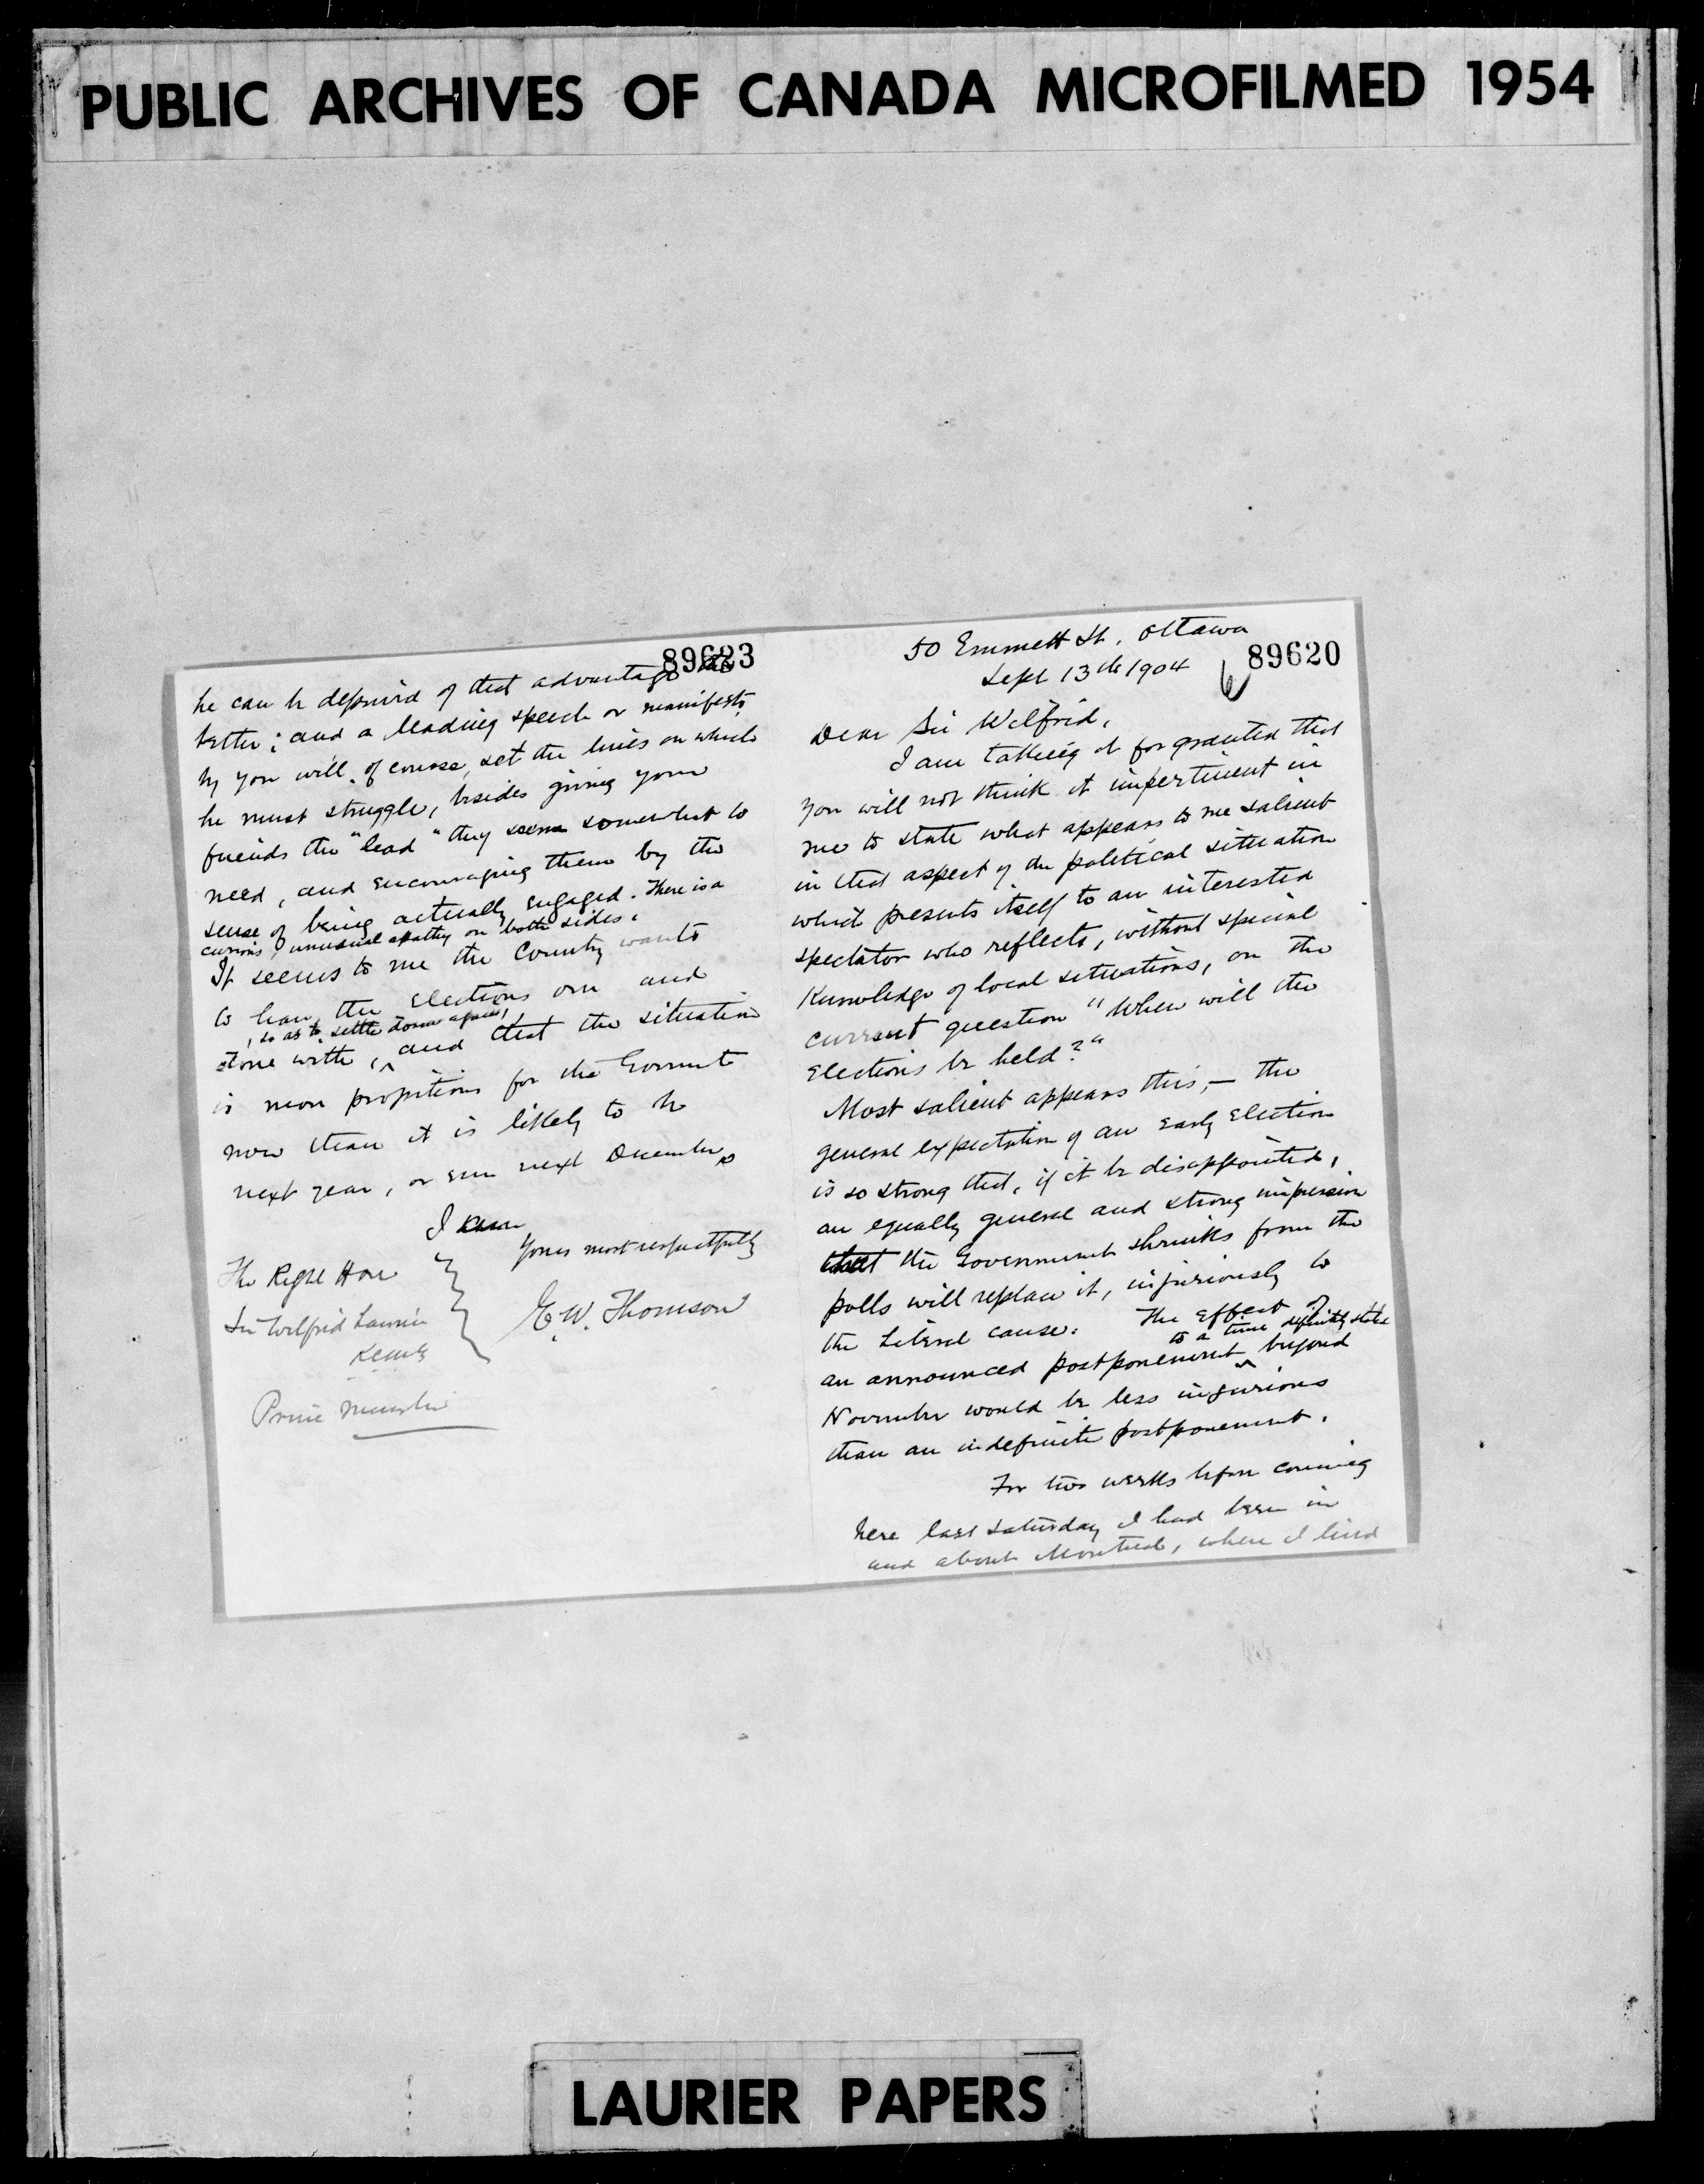 PUBLIC ARCHIVES OF CANADA MICROFILMED 1954
89623
he can be deprived of that advantage the
better; and a leading speech or manifesto
by you will, of course, set the lines on which
he must struggle, besides giving your
friends the "lead" they seem somewhat to
need, and encouraging them by the
sense of being actually engaged. There is a
curious, unusual apathy on both sides.
It seems to me the Country wants
to have the elections over and
, so as to settle down again,
done with, ^ and that the situation
is more propitious for the Govrnmt
now than it is likely to be
next year, or even next December.
I am
Yours most respectfully
E.W. Thomson
The Right Hon
Sir Wilfrid Laurier
Prime Minister
50 Emmett St, Ottawa
89620
Sept 13th 1904
Dear Sir Wilfrid,
I am taking it for granted that
you will not think it impertinent in
me to state what appears to me salient
in that aspect of the political situation
which presents itself to an interested
spectator who reflects, without special
Knowledge of local situations, on the
current question "When will the
elections be held?"
Most salient appears this, — the
general expectation of an early election
is so strong that, if it be disappointed,
an equally general and strong impression
that the Government shrinks from the
polls will replace it, injuriously to
the Liberal cause. The effect of
to a time definitely stated
an announced postponement ^ beyond
November would be less injurious
than an indefinite postponement.
For two weeks before coming
here last Saturday I had been in
and about Montreal, where I lived
LAURIER PAPERS